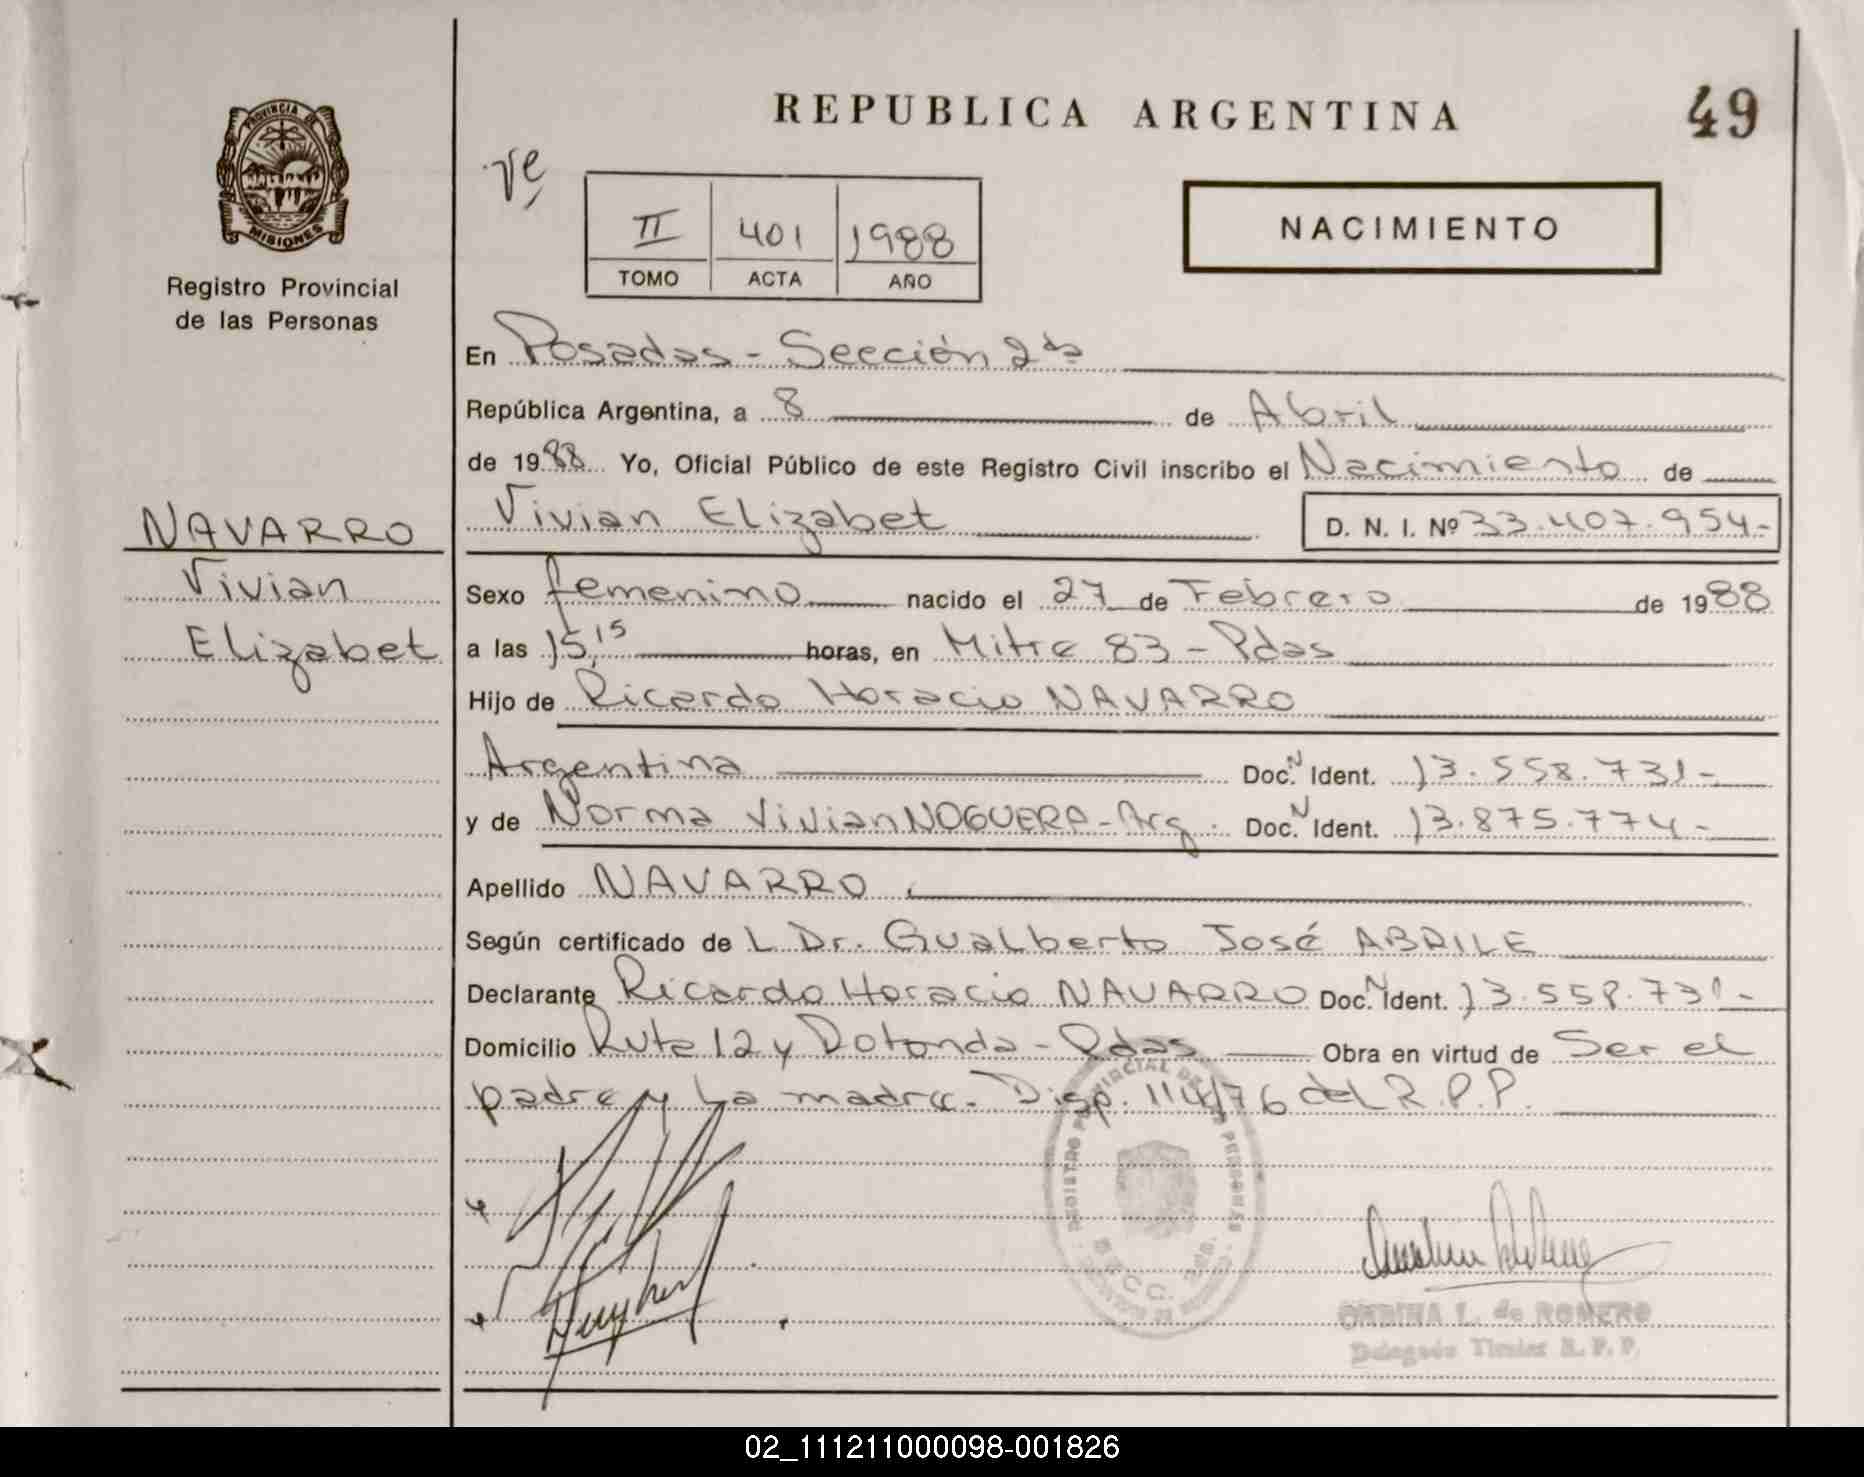 REPUBLICA ARGENTINA
49
PROVINCIA DE
MISIONES
Registro Provincial
de las Personas
II 401 1988
TOMO ACTA AÑO
NACIMIENTO
En Posadas - Sección 2da
República Argentina, a 8 de Abril
de 1988 Yo, Oficial Público de este Registro Civil inscribo el Nacimiento de
Vivian Elizabet D. N. I. Nº 33.407.954-
NAVARRO
Vivian
Elizabet
Sexo femenino nacido el 27 de Febrero de 1988
a las 15,15 horas, en Mitre 83 - Pdas
Hijo de Ricardo Horacio NAVARRO
Argentina Doc. N Ident. 13.558.731-
y de Norma Vivian NOGUERA - Arg. Doc. N Ident. 13.875.774-
Apellido NAVARRO
Según certificado de L Dr. Gualberto José ABRILE
Declarante Ricardo Horacio NAVARRO Doc. N Ident. 13.558.731-
Domicilio Ruta 12 y Rotonda - Pdas Obra en virtud de Ser el
padre y La madre. Disp. 114/76 del R.P.P.
REGISTRO PROVINCIAL DE LAS PERSONAS
L. de ROMERO
Titular R. P. P.
02_111211000098-001826